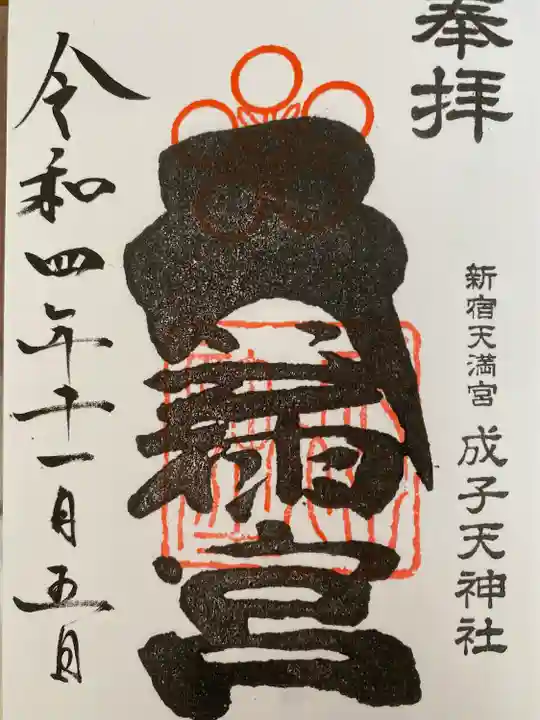 奉拝
新宿天満宮 成子天神社
令和四年十一月五日